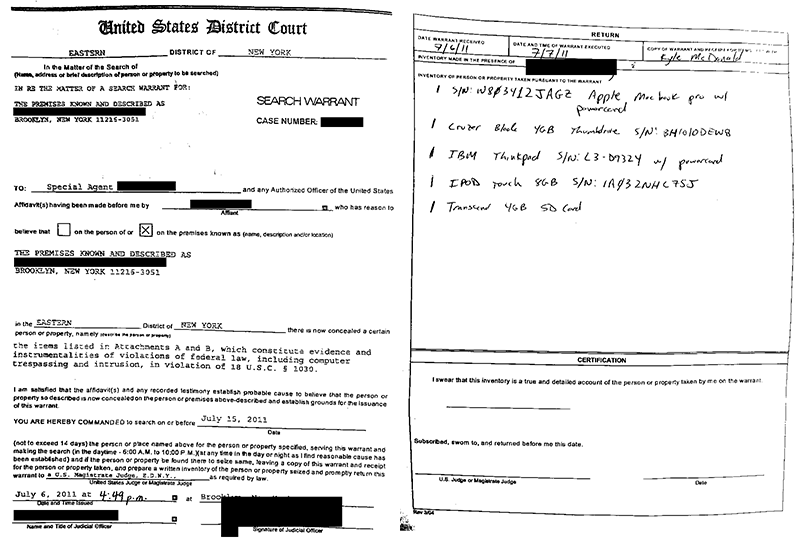 United States District Court
EASTERN DISTRICT OF NEW YORK
In the Matter of the Search of
(Name, address or brief description of person or property to be searched)
IN RE THE MATTER OF A SEARCH WARRANT FOR:
THE PREMISES KNOWN AND DESCRIBED AS
BROOKLYN, NEW YORK 11216-3051
SEARCH WARRANT
CASE NUMBER:
TO: Special Agent and any Authorized Officer of the United States
Affidavit(s) having been made before me by who has reason to
Affiant
believe that on the person of or on the premises known as (name, description and/or location)
THE PREMISES KNOWN AND DESCRIBED AS
BROOKLYN, NEW YORK 11216-3051
in the EASTERN District of NEW YORK there is now concealed a certain
person or property, namely (describe the person or property)
the items listed in Attachments A and B, which constitute evidence and
instrumentalities of violations of federal law, including computer
trespassing and intrusion, in violation of 18 U.S.C. § 1030.
I am satisfied that the affidavit(s) and any recorded testimony establish probable cause to believe that the person or
property so described is now concealed on the person or premises above-described and establish grounds for the issuance
of this warrant.
YOU ARE HEREBY COMMANDED to search on or before July 15, 2011
Date
(not to exceed 14 days) the person or place named above for the person or property specified, serving this warrant and
making the search (in the daytime - 6:00 A.M. to 10:00 P.M.) (at any time in the day or night as I find reasonable cause has
been established) and if the person or property be found there to seize same, leaving a copy of this warrant and receipt
for the person or property taken, and prepare a written inventory of the person or property seized and promptly return this
warrant to a U.S. Magistrate Judge, E.D.N.Y., as required by law.
United States Judge or Magistrate Judge
July 6, 2011 at 4:49 p.m. at
Date and Time Issued
Name and Title of Judicial Officer
Signature of Judicial Officer
RETURN
DATE WARRANT RECEIVED
7/6/11
DATE AND TIME OF WARRANT EXECUTED
7/7/11
COPY OF WARRANT AND RECEIPT FOR
Kyle McDonald
INVENTORY MADE IN THE PRESENCE OF
INVENTORY OF PERSON OR PROPERTY TAKEN PURSUANT TO THE WARRANT
1 S/N: W803412JAGZ Apple Macbook pro w/
powercord
1 Cruzer Blade 4GB Thumbdrive S/N: 3H1010DEWB
1 IBM Thinkpad S/N: L3-D9324 w/ powercord
1 IPOD touch 8GB S/N: 1A032NHL75J
1 Transcend 4GB SD Card
CERTIFICATION
I swear that this inventory is a true and detailed account of the person or property taken by me on the warrant.
Subscribed, sworn to, and returned before me this date.
U.S. Judge or Magistrate Judge
Date
Rev 3/04